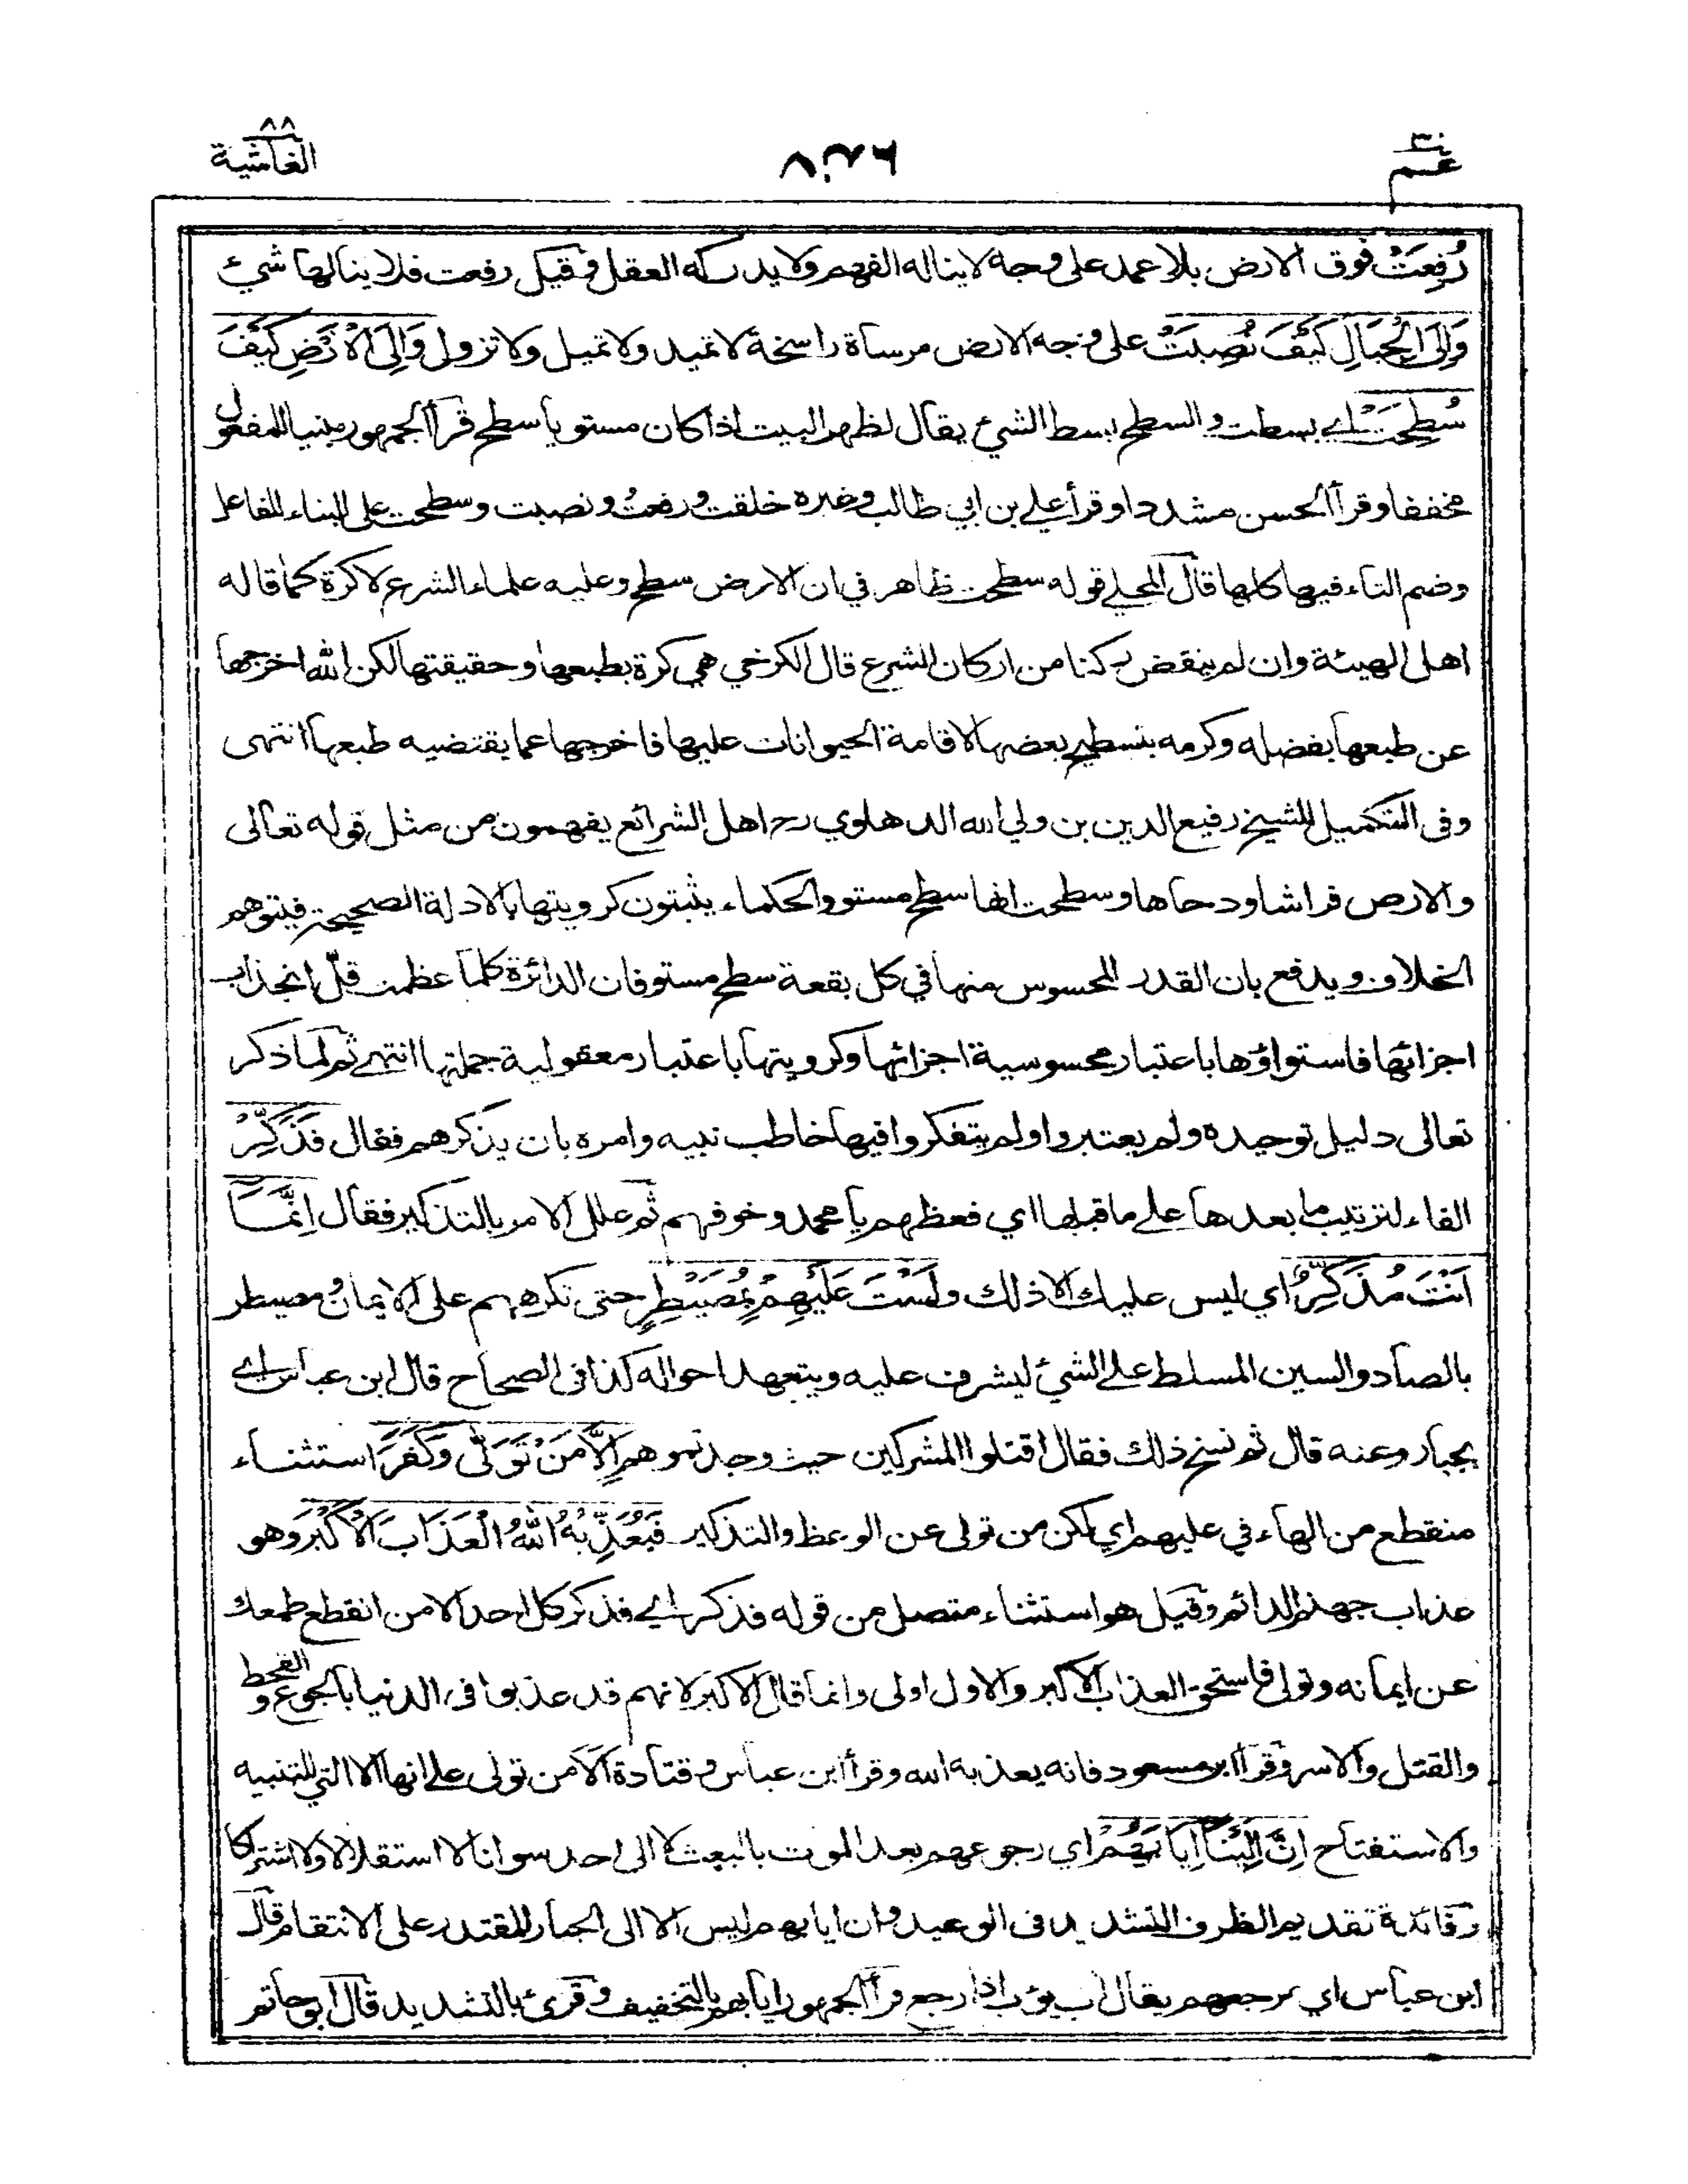 عم ٣٠
الغاشية ٨٨
رُفِعَتْ فوق الارض بلا عمد على وجه لا يناله الفهم ولا يدركه العقل وقيل رفعت فلا ينالها شيء
وَإِلَى الْجِبَالِ كَيْفَ نُصِبَتْ على وجه الارض مرساة راسخة لا تميد ولا تميل ولا تزول وَإِلَى الْأَرْضِ كَيْفَ
سُطِحَتْ اي بسطت والسطح بسط الشيء يقال لظهر البيت اذا كان مستويا سطح قرأ الجمهور مبنيا للمفعول
مخففا وقرأ الحسن مشددا وقرأ علي بن ابي طالب وغيره خلقت ورفعت ونصبت وسطحت على البناء للفاعل
وضم التاء فيها كلها قال المحلي قوله سطحت ظاهر في ان الارض سطح وعليه علماء الشرع لا كرة كما قاله
اهل الهيئة وان لم ينقض ركنا من اركان الشرع قال الكرخي هي كرة بطبعها وحقيقتها لكن الله اخرجها
عن طبعها بفضله وكرمه بتسطيح بعضها لاقامة الحيوانات عليها فاخرجها عما يقتضيه طبعها انتهى
وفى التكميل للشيخ رفيع الدين بن ولي الله الدهلوي رح اهل الشرائع يفهمون من مثل قوله تعالى
والارض فراشا ودحاها وسطحت انها سطح مستو والحكماء يثبتون كرويتها بالادلة الصحيحة فيتوهم
الخلاف ويدفع بان القدر المحسوس منها في كل بقعة سطح مستو فان الدائرة كلما عظمت قلّ انجذاب
اجزائها فاستواؤها باعتبار محسوسية اجزائها وكرويتها باعتبار معقولية جملتها انتهى ثم لما ذكر
تعالى دليل توحيده ولم يعتبروا ولم يتفكروا فيها خاطب نبيه وامره بان يذكرهم فقال فَذَكِّرْ
الفاء لترتيب ما بعدها على ما قبلها اي فعظهم يا محمد وخوفهم ثم علل الامر بالتذكير فقال اِنَّمَا
اَنْتَ مُذَكِّرٌ اي ليس عليك الا ذلك ولَسْتَ عَلَيْهِمْ بِمُصَيْطِرٍ حتى تكرههم على الايمان ومصيطر
بالصاد والسين المسلط على الشيء ليشرف عليه ويتعهد احواله كذا فى الصحاح قال ابن عباس اي
بجبار وعنه قال ثم نسخ ذلك فقال اقتلوا المشركين حيث وجدتموهم اِلَّا مَنْ تَوَلّٰى وَكَفَرَ استثناء
منقطع من الهاء في عليهم اي لكن من تولى عن الوعظ والتذكير فَيُعَذِّبُهُ اللّٰهُ الْعَذَابَ الْاَكْبَرَ وهو
عذاب جهنم الدائم وقيل هو استثناء متصل من قوله فذكر اي فذكر كل احد الا من انقطع طمعك
عن ايمانه وتولى فاستحق العذاب الاكبر والاول اولى وانما قال الاكبر لانهم قد عذبوا فى الدنيا بالجوع والقحط
والقتل والاسر وقرأ ابن مسعود فانه يعذبه الله وقرأ ابن عباس وقتادة اَلَا من تولى على انها الا التي للتنبيه
والاستفتاح اِنَّ اِلَيْنَا اِيَابَهُمْ اي رجوعهم بعد الموت بالبعث لا الى احد سوانا لا استقلالا ولا اشتراكا
وفائدة تقديم الظرف التشديد فى الوعيد وان ايابهم ليس الا الى الجبار المقتدر على الانتقام قال
ابن عباس اي مرجعهم يقال آب يؤب اذا رجع قرأ الجمهور ايابهم بالتخفيف وقرئ بالتشديد قال ابو حاتم